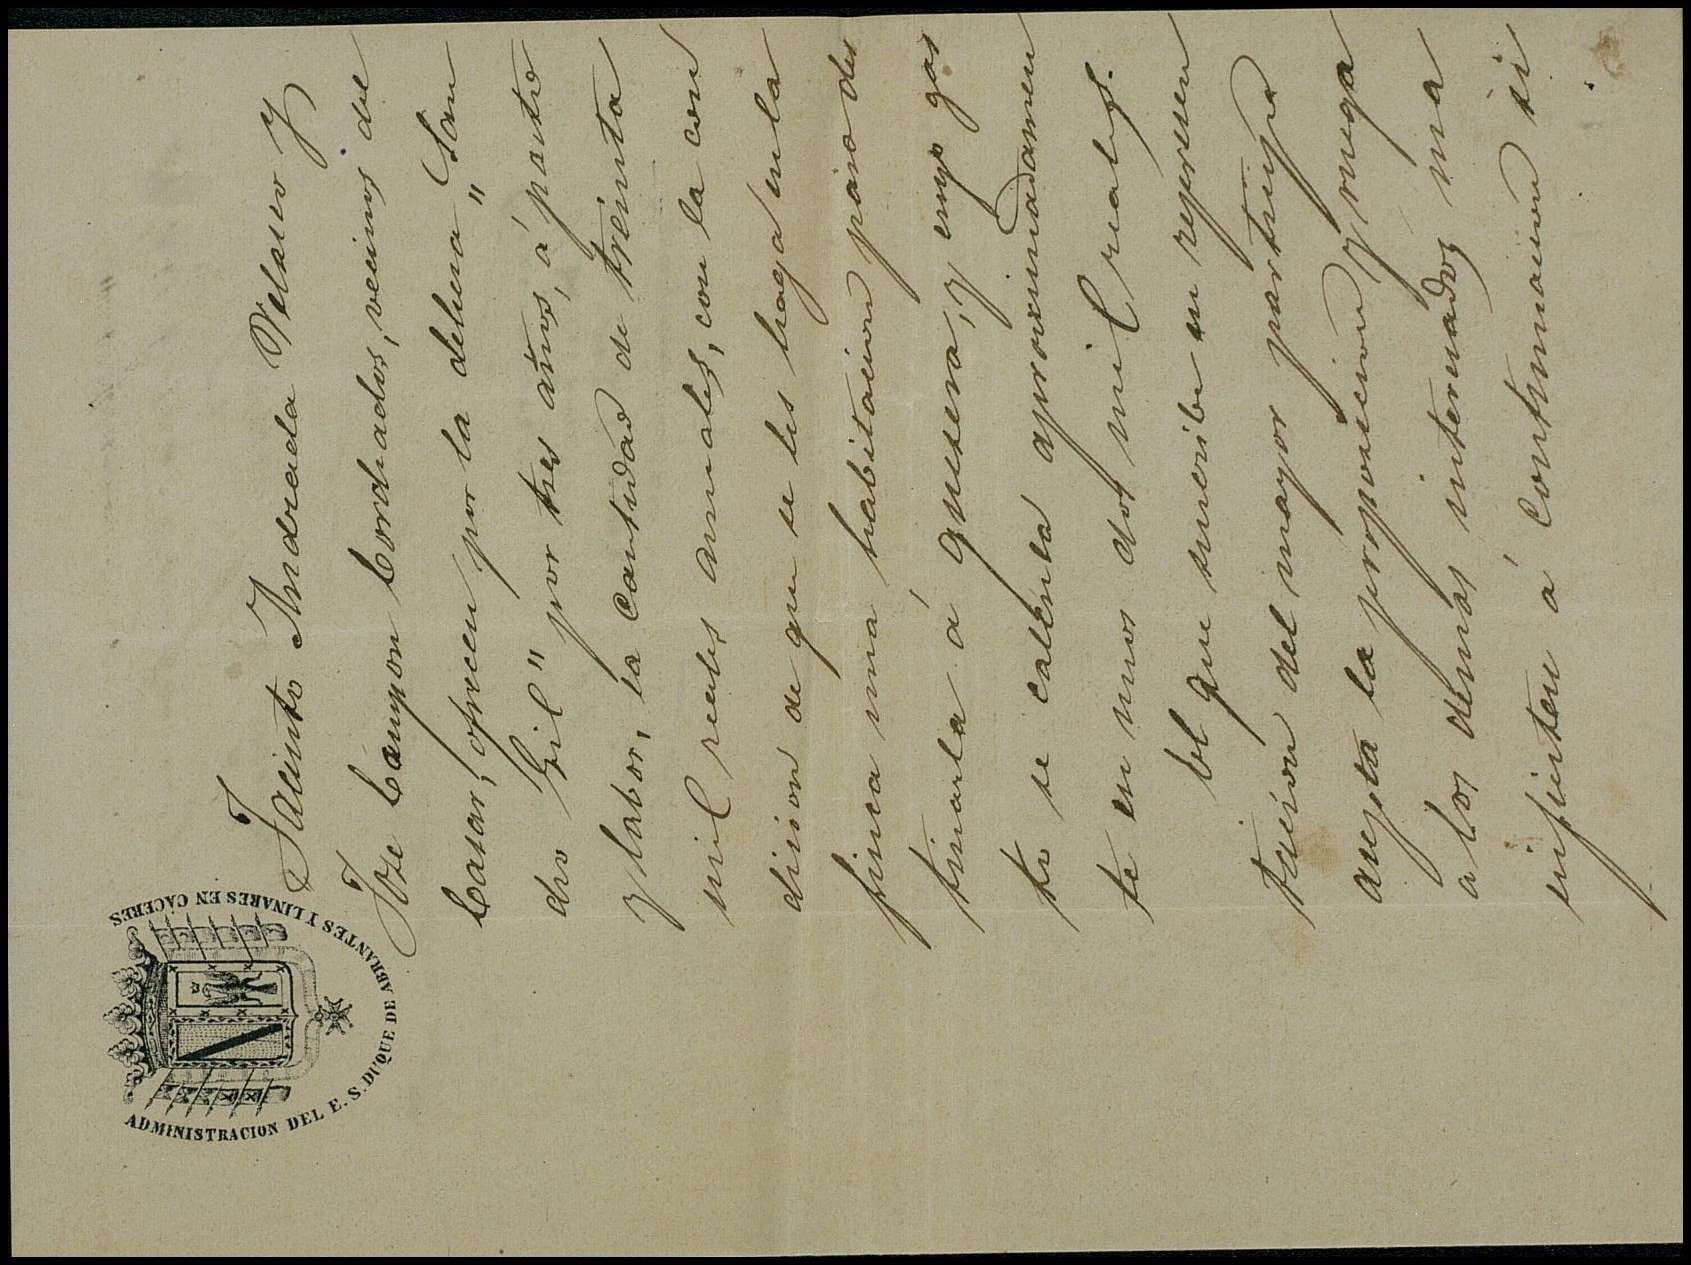 ADMINISTRACION DEL E. S. DUQUE DE ABRANTES Y LINARES EN CÁCERES
Jacinto Andrada Velasco y
Jose Campon Cordiados, vecinos del
Casar, ofrecen por la dehesa "San
dro Gil" por tres años, á pasto
y labor, la cantidad de treinta
mil reales anuales, con la con
dision de que se les haga en la
finca una habitacion para des
tinarla á quesera, y cuyo gas
to se calcula aproximadamen
te en unos dos mil reales.
El que suscribe en represen
tacion del mayor participe
acepta la proposicion y ruega
a los demas interesados ma
nifiesten á continuacion si